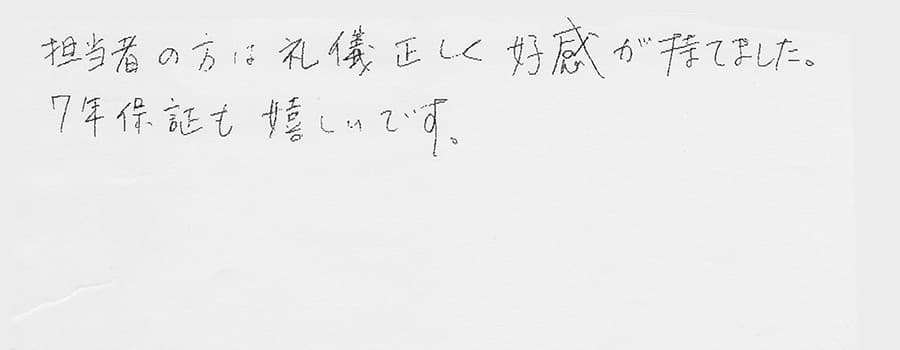 担当者の方は礼儀正しく好感が持てました。
7年保証も嬉しいです。